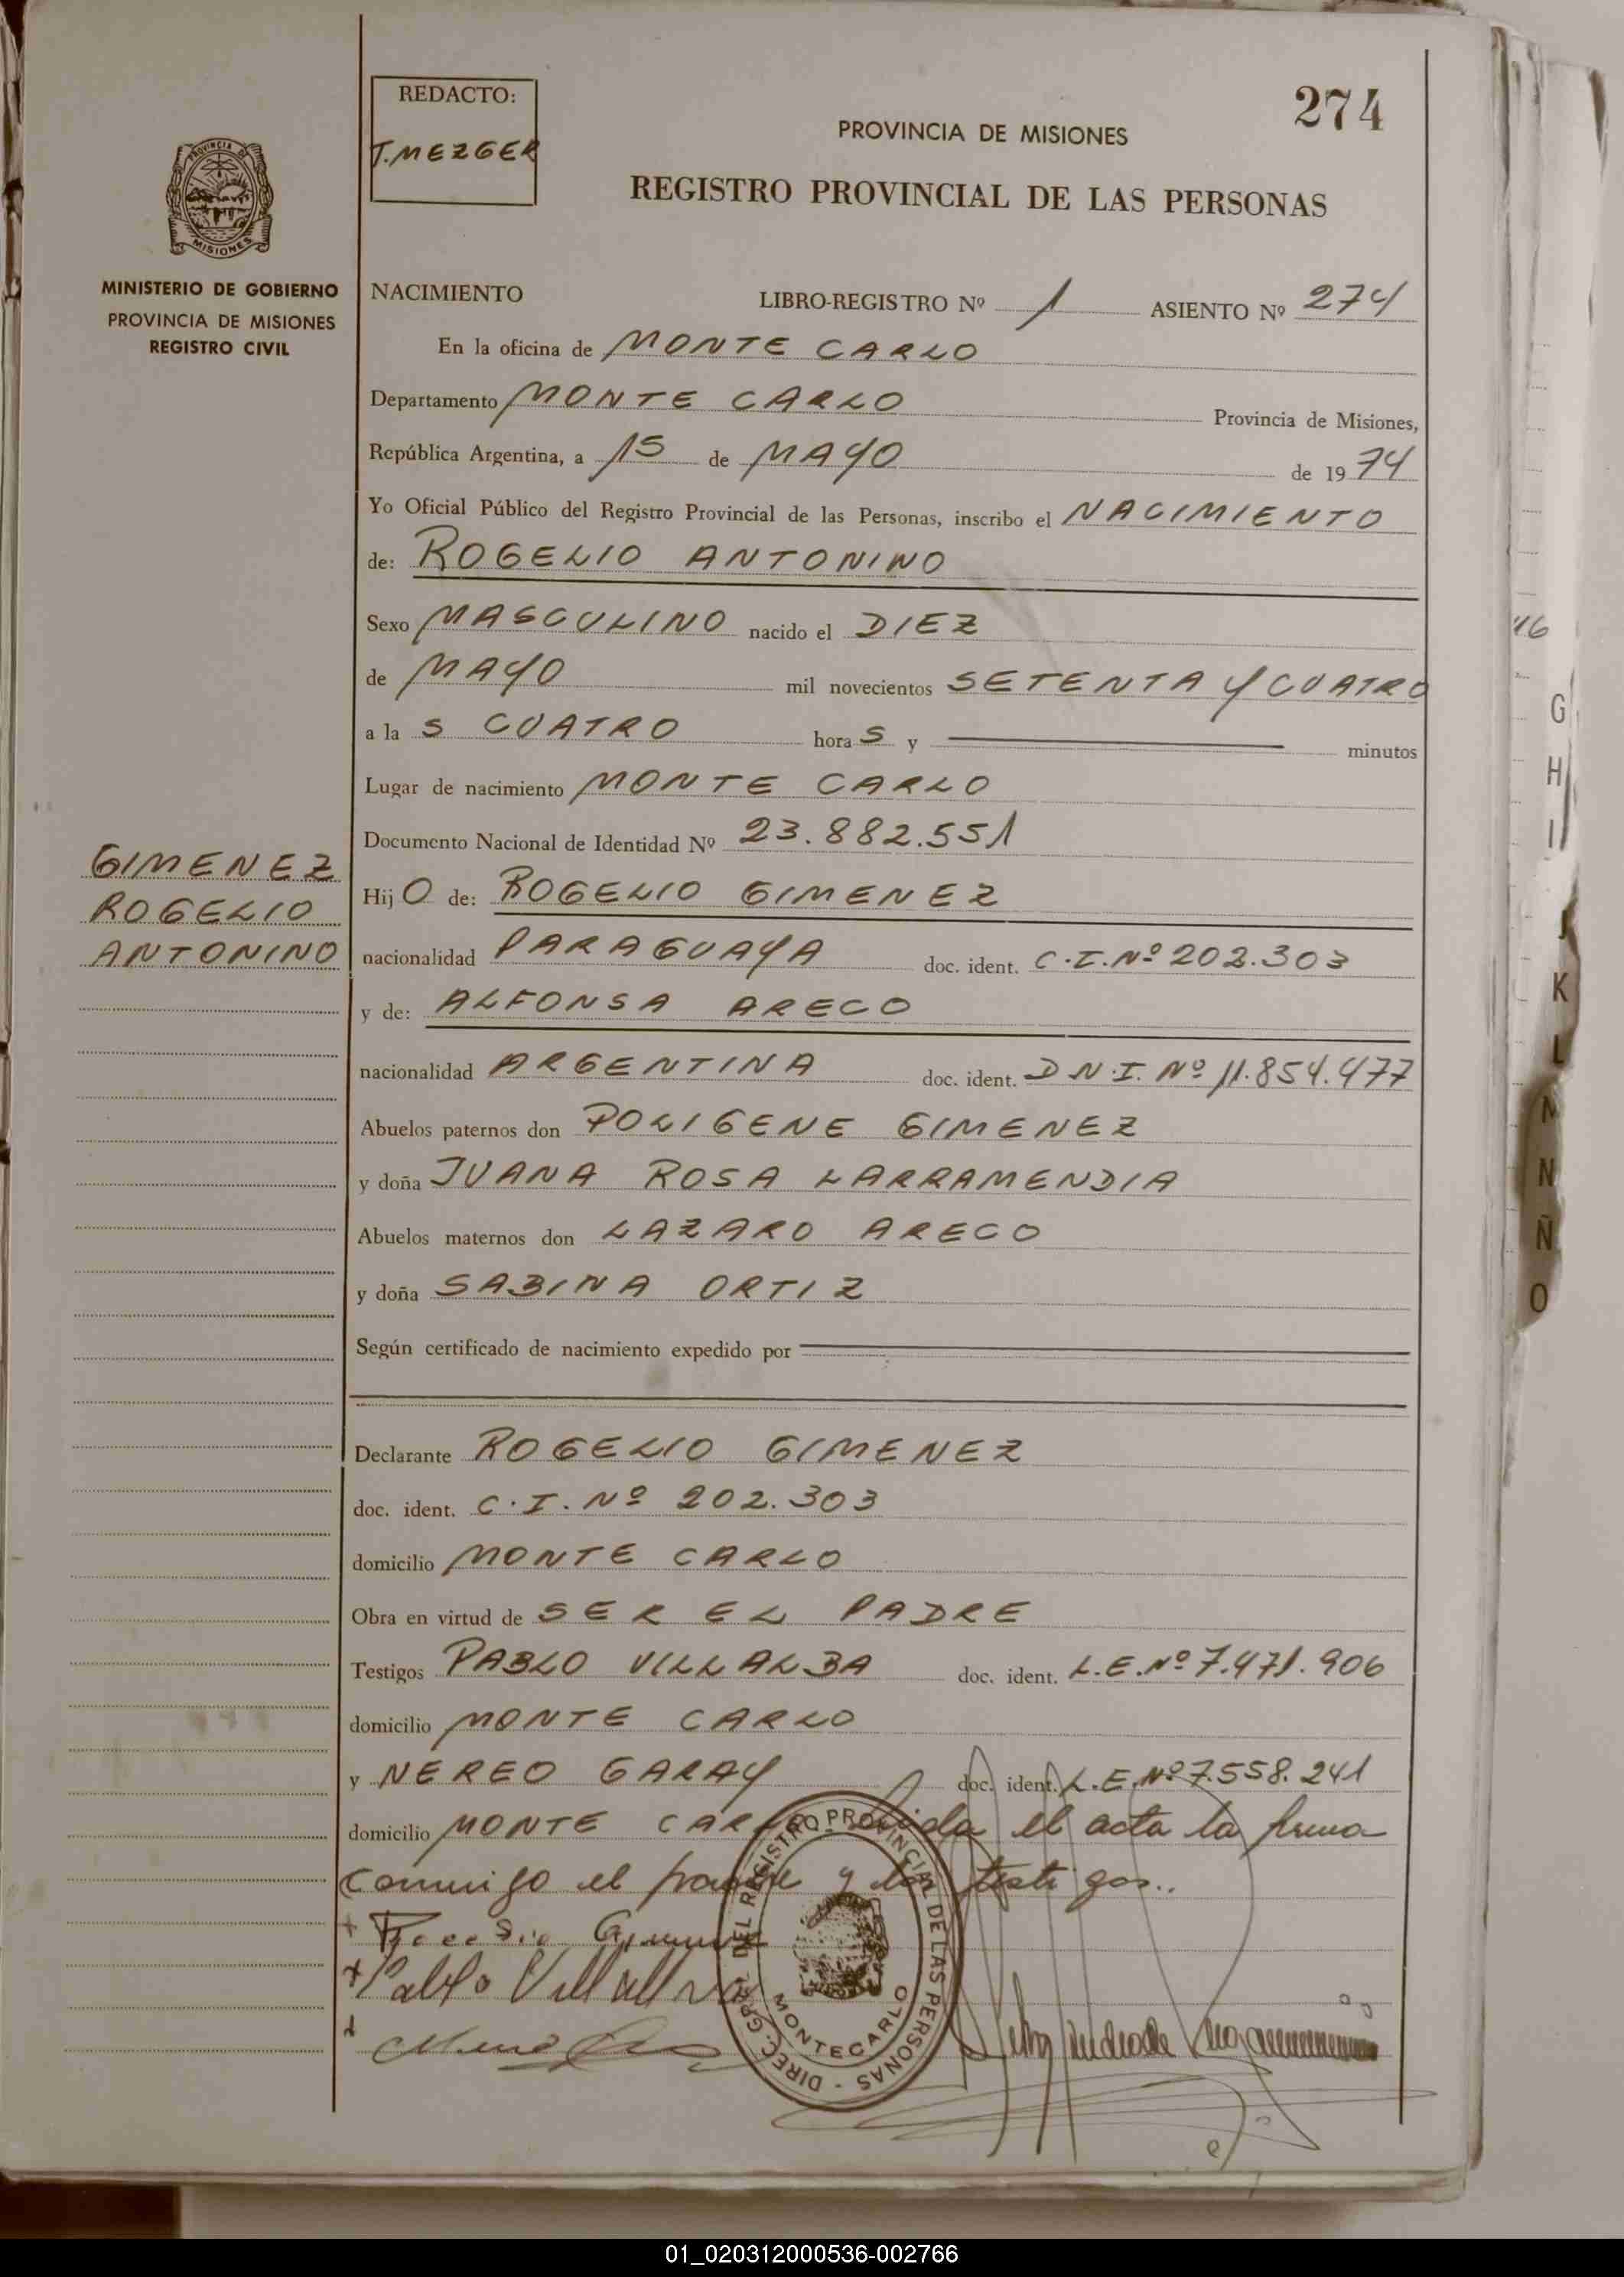 REDACTO:
T. MEZGER
274
PROVINCIA DE MISIONES
REGISTRO PROVINCIAL DE LAS PERSONAS
PROVINCIA DE
MISIONES
MINISTERIO DE GOBIERNO
PROVINCIA DE MISIONES
REGISTRO CIVIL
NACIMIENTO LIBRO-REGISTRO Nº 1 ASIENTO Nº 274
En la oficina de MONTE CARLO
Departamento MONTE CARLO Provincia de Misiones,
República Argentina, a 15 de MAYO de 1974
Yo Oficial Público del Registro Provincial de las Personas, inscribo el NACIMIENTO
de: ROGELIO ANTONINO
Sexo MASCULINO nacido el DIEZ
de MAYO mil novecientos SETENTA Y CUATRO
a la S CUATRO hora S y minutos
Lugar de nacimiento MONTE CARLO
Documento Nacional de Identidad Nº 23.882.551
GIMENEZ
ROGELIO
ANTONINO
Hij O de: ROGELIO GIMENEZ
nacionalidad PARAGUAYA doc. ident. C.I.Nº 202.303
y de: ALFONSA ARECO
nacionalidad ARGENTINA doc. ident. D.N.I. Nº 11.854.477
Abuelos paternos don POLIGENE GIMENEZ
y doña JUANA ROSA LARRAMENDIA
Abuelos maternos don LAZARO ARECO
y doña SABINA ORTIZ
Según certificado de nacimiento expedido por
Declarante ROGELIO GIMENEZ
doc. ident. C.I. Nº 202.303
domicilio MONTE CARLO
Obra en virtud de SER EL PADRE
Testigos PABLO VILLALBA doc. ident. L.E.Nº 7.471.906
domicilio MONTE CARLO
y NEREO GARAY doc. ident. L.E.Nº 7.558.241
domicilio MONTE CARLO Leida el acta la firma
conmigo el padre y los testigos..
Pablo Villallva
DIREC. GRAL. DEL REGISTRO PROVINCIAL DE LAS PERSONAS -
MONTECARLO
16
G
H
I
J
K
L
M
N
Ñ
O
01_020312000536-002766